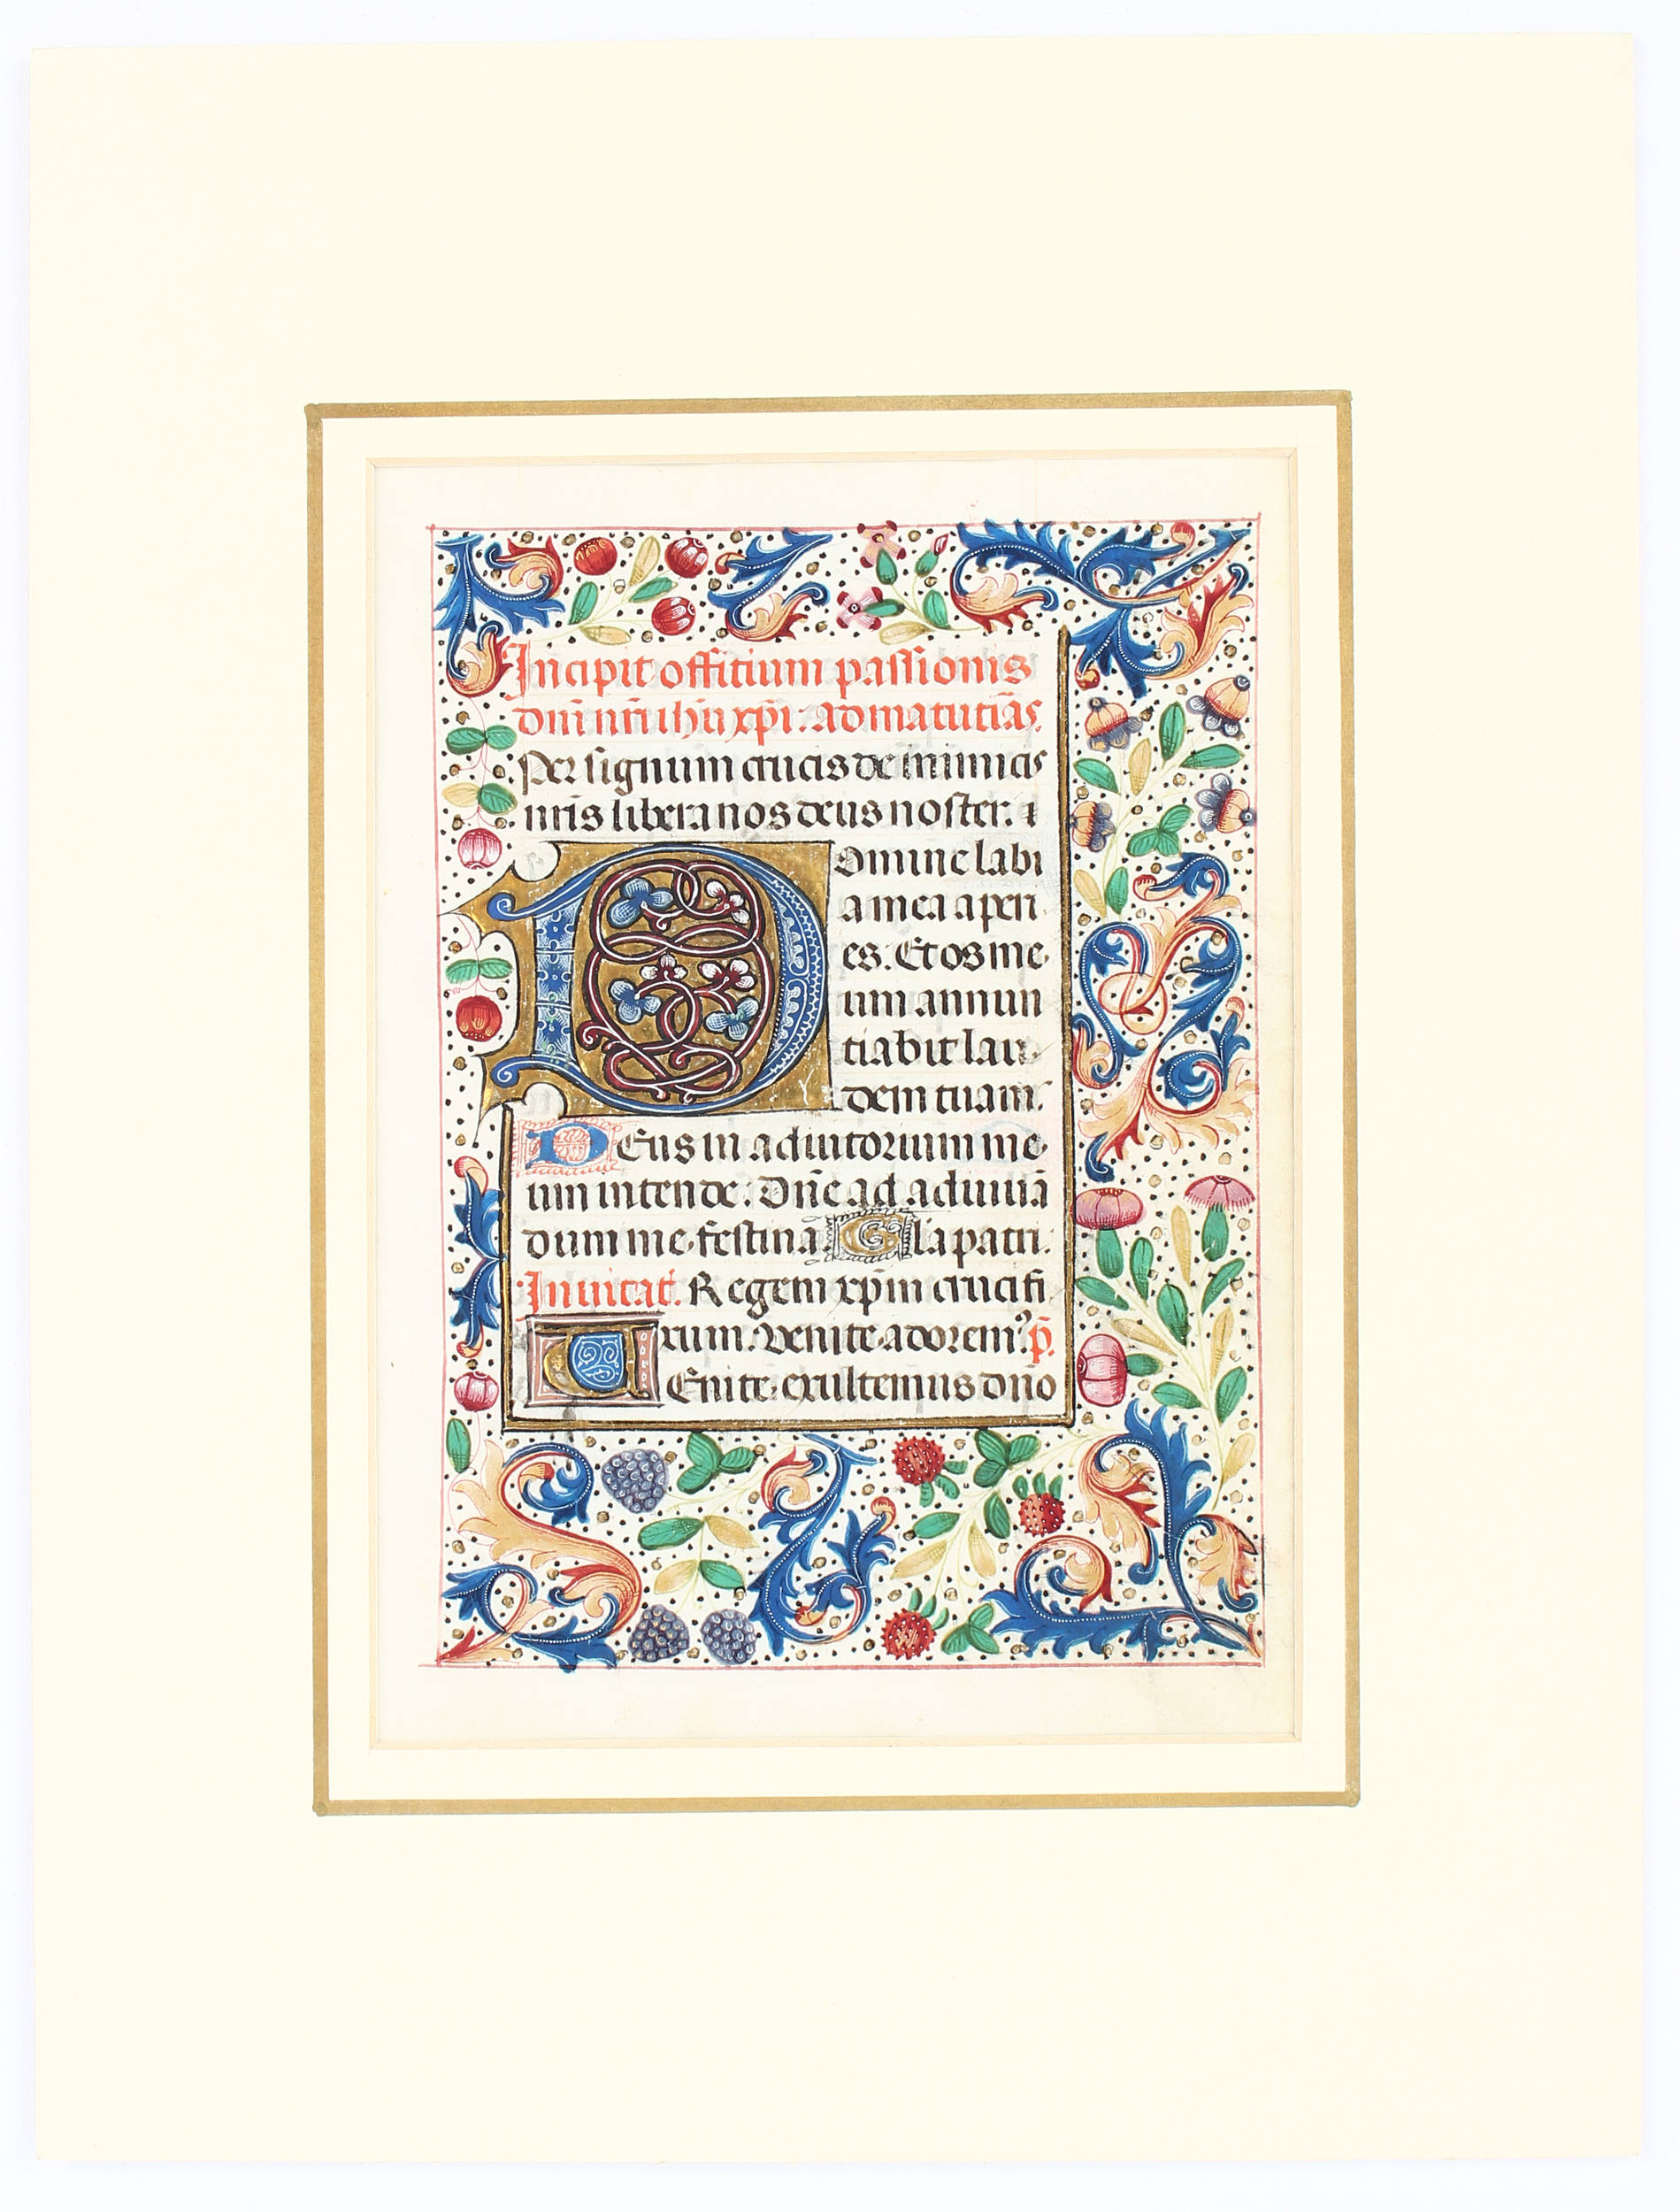 Incipit offitium passionis
dn̄i nr̄i ihū xp̄i: ad matutīas.
Per signum crucis de inimicis
nr̄is libera nos deus noster:
Domine labi
a mea aperi
es. Et os me
um annun
tiabit lau
dem tuam.
DEus in adiutorium me
um intende: Dn̄e ad adiuuā
dum me festina. Gl̄a patri.
Inuitat. Regem xp̄m crucifi
xum. Venite adorem⁹ p̄.
VEnite exultemus dn̄o